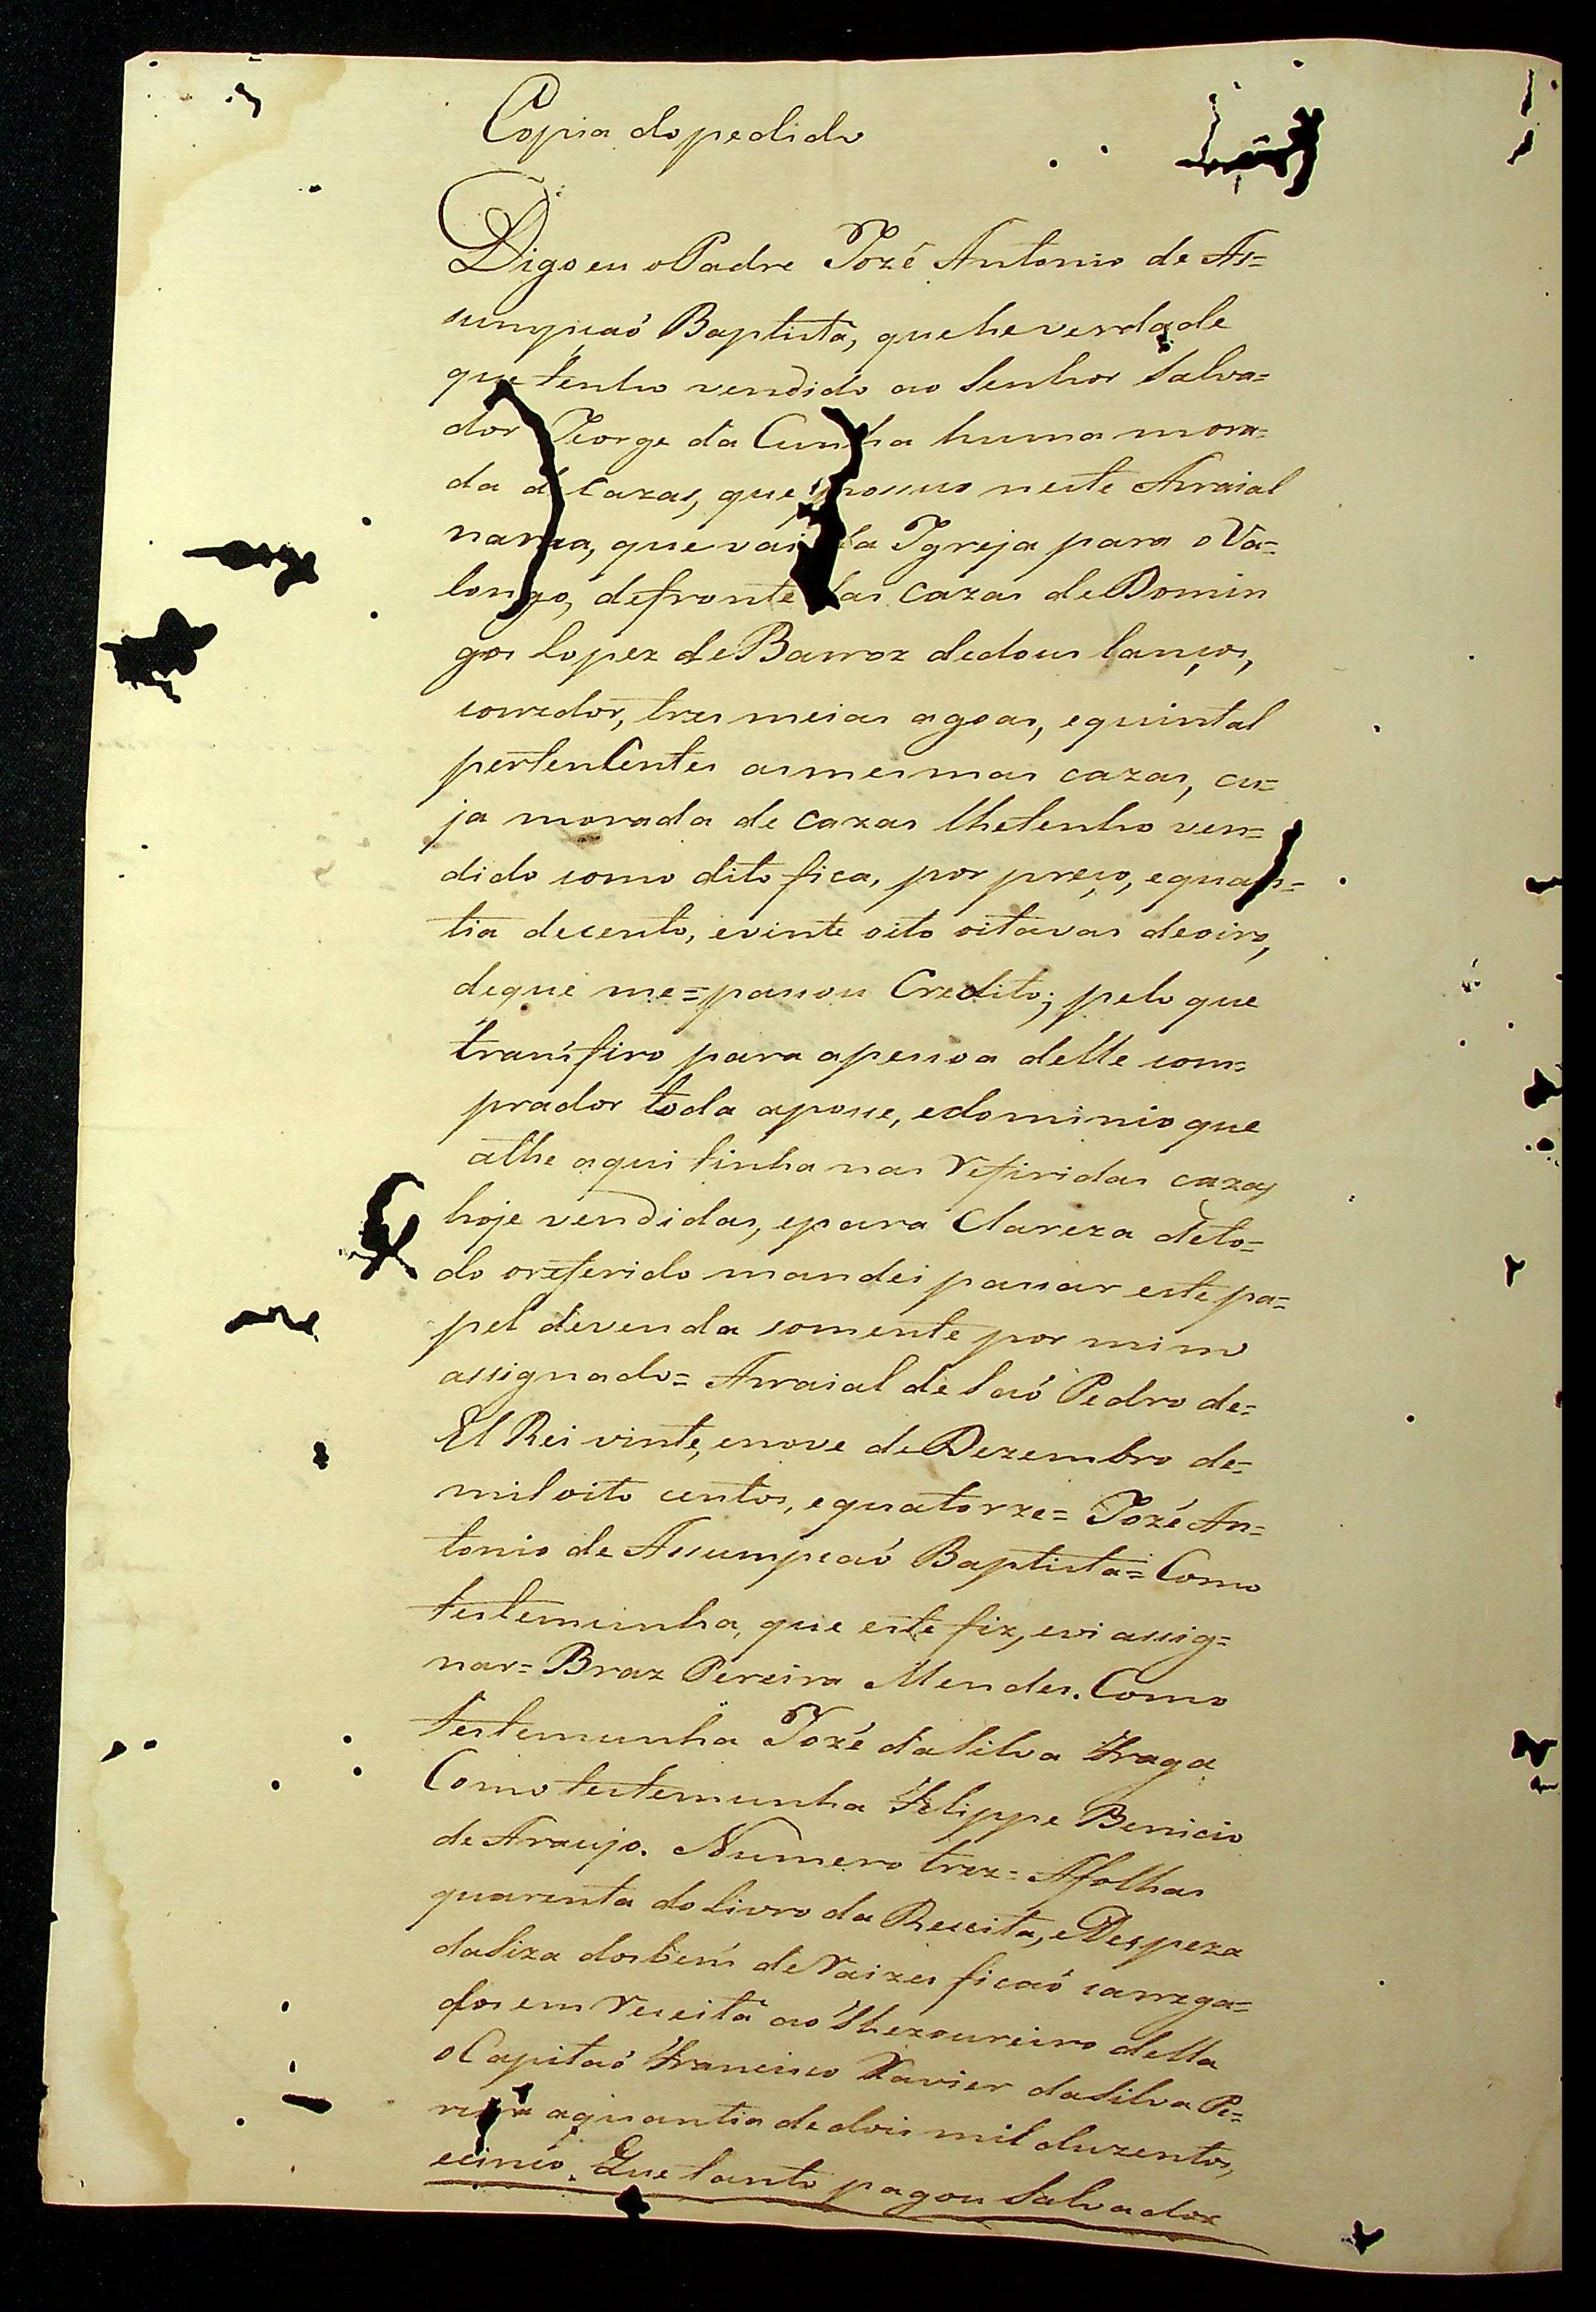 Copia do pedido
Digo eu o Padre Jozé Antonio de As=
sumpçaó Baptista, que he verdade
que tenho vendido ao Senhor Salva=
dor Jorge da Cunha huma mora=
da de cazas, que possuo neste Arraial
na rua, que vai da Igreja para o Va=
longo, defronte das cazas de Domin
gos Lopez de Barroz de dous lanços,
corredor, tres meias agoas, e quintal
pertencentes as mesmas cazas, cu=
ja morada de cazas lhe tenho ven=
dido como dito fica, por preço, e quan=
tia de cento, e vinte oito oitavas de oiro,
de que me=passou Credito; pelo que
transfiro para a pessoa delle com=
prador toda a posse, e dominio que
athe aqui tinha nas referidas cazas
hoje vendidas, e para Clareza de to=
do o referido mandei passar este pa=
pel de venda somente por mim
assignado= Arraial de Saó Pedro de=
El Rei vinte, e nove de Dezembro de=
mil oito centos, e quatorze= Jozé An=
tonio de Assumpçaó Baptista= Como
testemunha, que este fiz, e vi assig=
nar= Braz Pereira Mendes. Como
testemunha Jozé da Silva Fraga
Como testemunha Felippe Benicio
de Araujo. Numero trez= A folhas
quarenta do Livro da Receita, e Despeza
da Siza dos bens de raizes ficaó carrega=
dos em receita ao Thezoureiro della
o Capitaó Francisco Xavier da Silva Pe=
reira a quantia de dois mil duzentos,
e cinco. Que tanto pagou Salvador